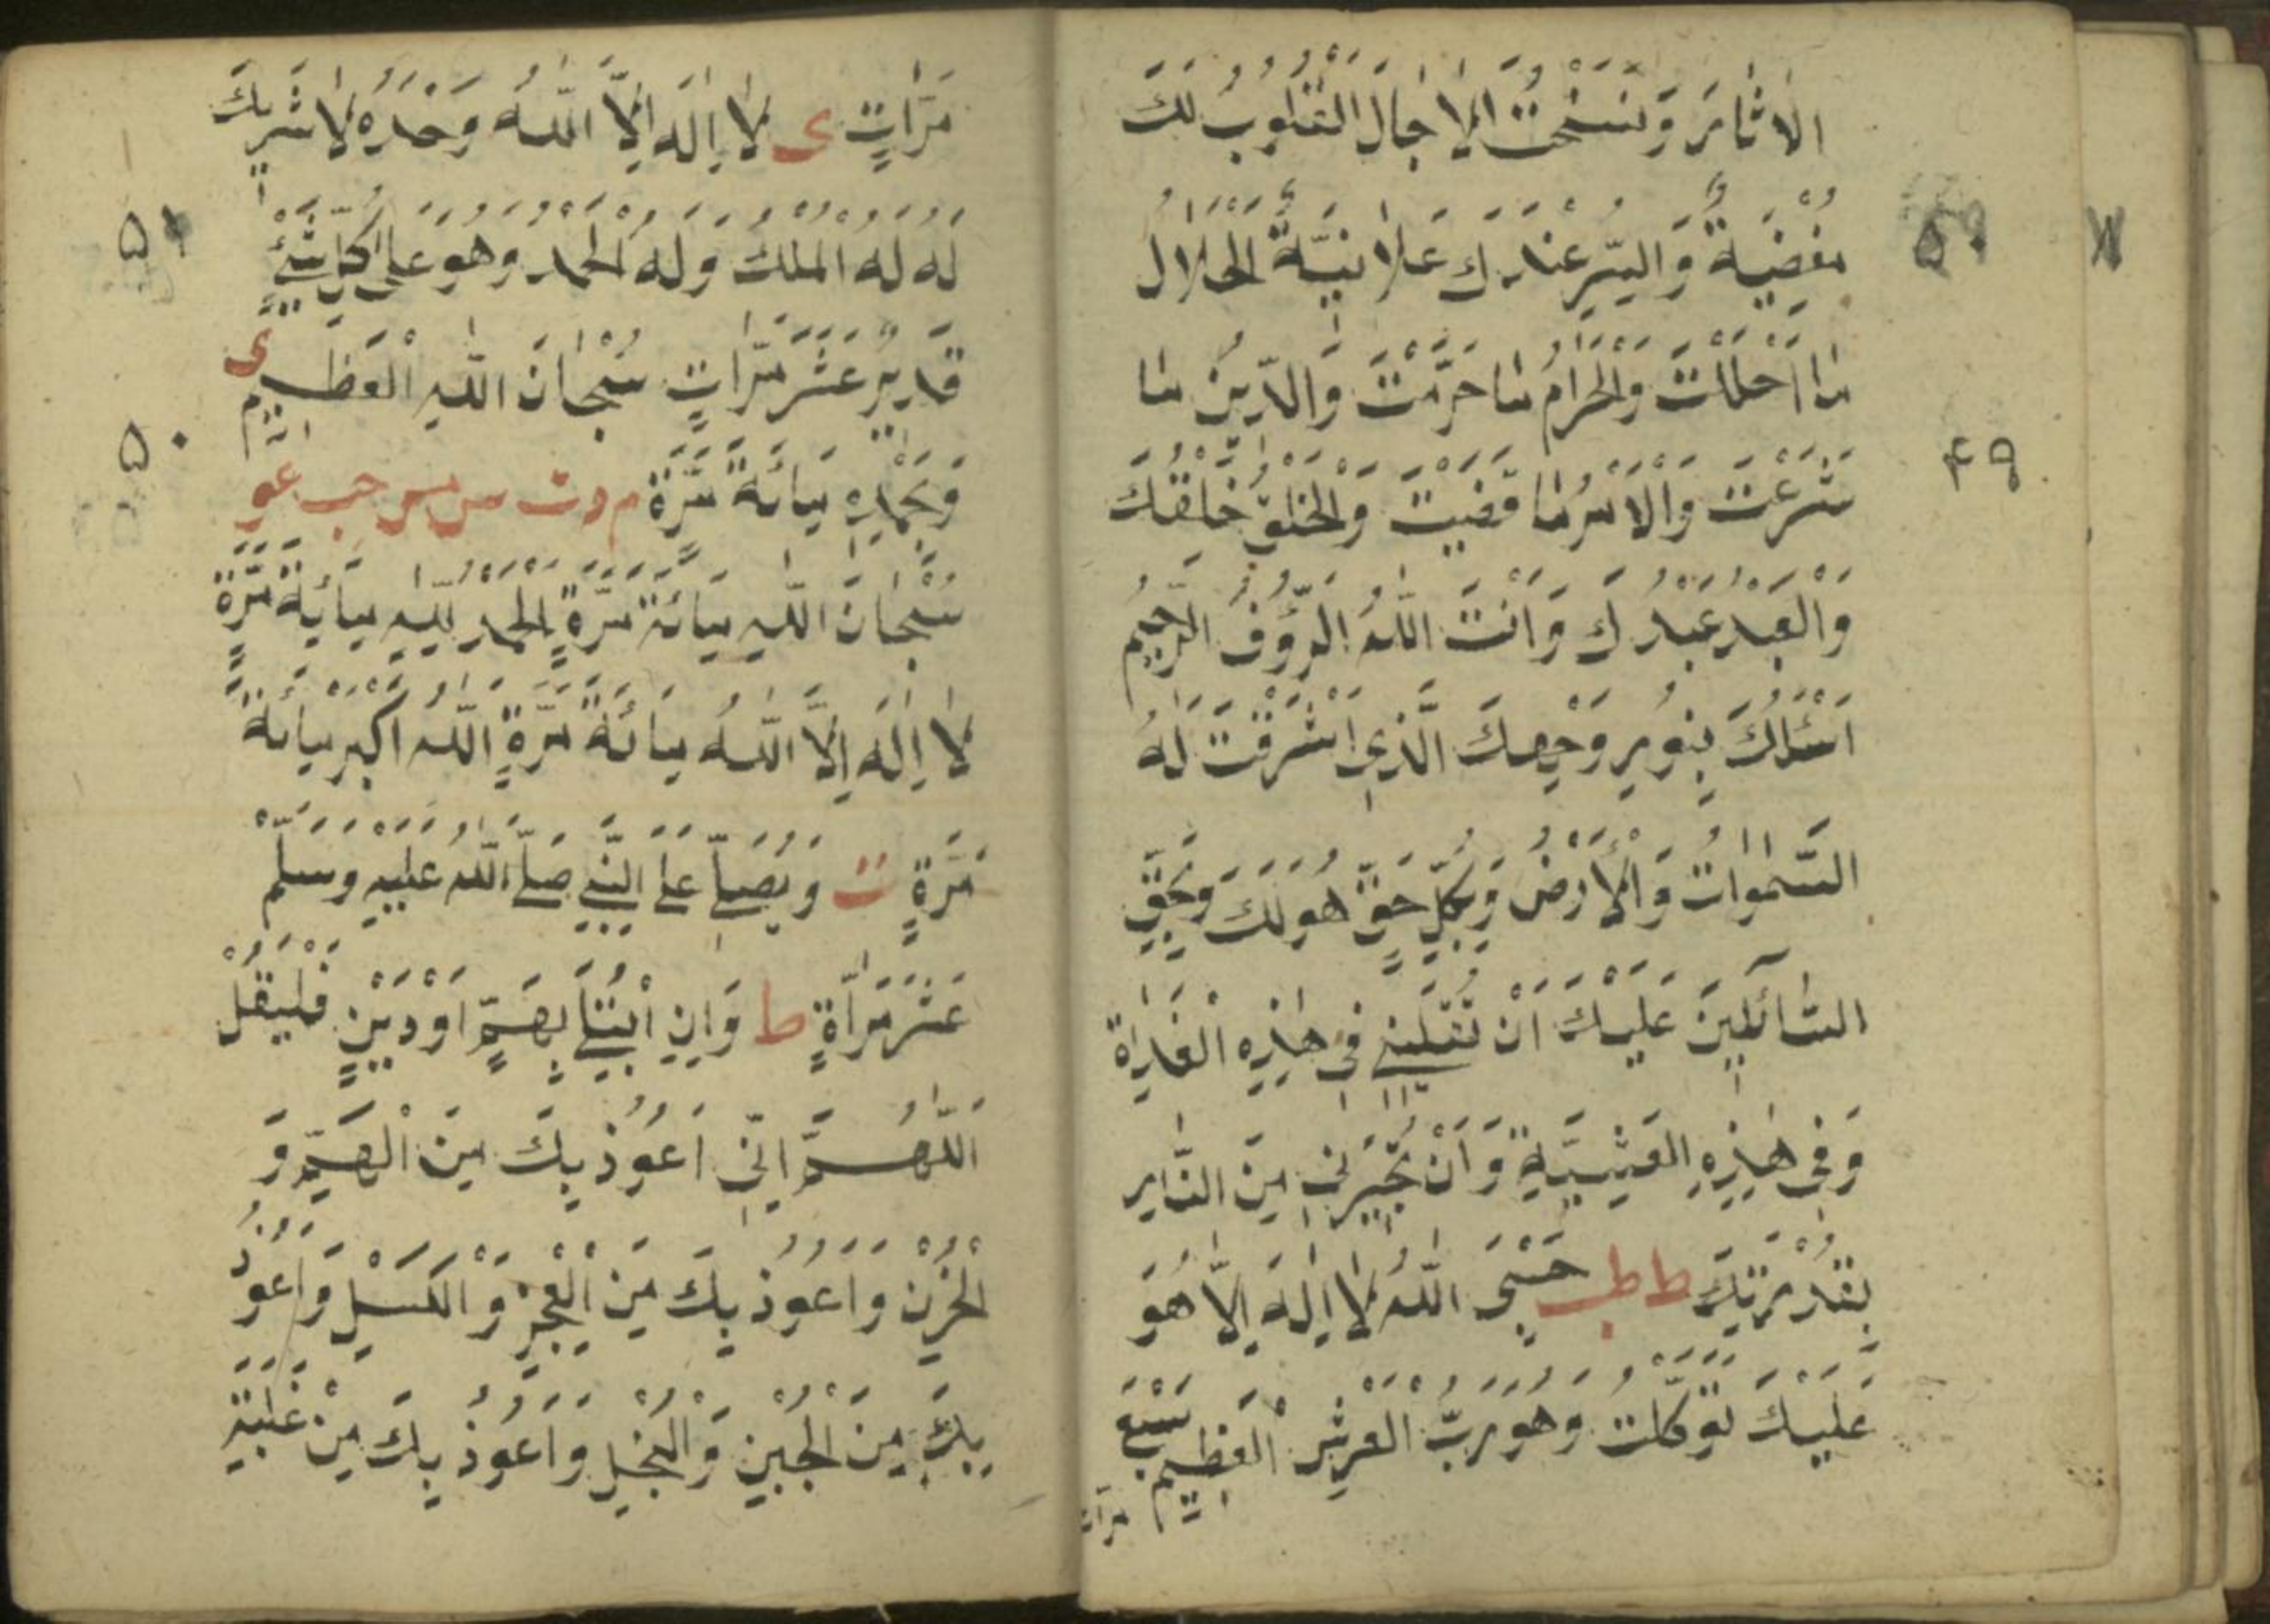 الاٰثارَ وَنَسَخْتَ الْاٰجالَ الْقُلُوبُ لَكَ
مُفْضِيَةٌ وَالسِّرُّ عِنْدَكَ عَلَانِيَةٌ اَلْحَلَالُ
مٰا اَحْلَلْتَ وَالْحَرَامُ مٰا حَرَّمْتَ وَالدِّينُ مٰا
شَرَعْتَ وَالْاَمْرُ مٰا قَضَيْتَ وَالْخَلْقُ خَلْقُكَ
وَالْعَبْدُ عَبْدُكَ وَاَنْتَ اللّٰهُ الرَّؤُفُ الرَّحِيمُ
اَسْئَلُكَ بِنُورِ وَجْهِكَ الَّذِي اَشْرَقَتْ لَهُ
السَّمٰوٰاتُ وَالْاَرْضُ وَبِكُلِّ حَقٍّ هُوَ لَكَ وَبِحَقِّ
السّٰائِلِينَ عَلَيْكَ اَنْ تُقِيلَنِي فِي هٰذِهِ الْغَدٰاةِ
وَفِي هٰذِهِ الْعَشِيَّةِ وَاَنْ تُجِيرَنِي مِنَ النَّارِ
بِقُدْرَتِكَ ط طب حَسْبِيَ اللّٰهُ لٰا اِلٰهَ اِلّٰا هُوَ
عَلَيْكَ تَوَكَّلْتُ وَهُوَ رَبُّ الْعَرْشِ الْعَظِيمِ سَبْعَ
مرات
۵۰
۴۹
مَرّٰاتٍ ى لٰا اِلٰهَ اِلَّا اللّٰهُ وَحْدَهُ لٰا شَرِيكَ
لَهُ لَهُ الْمُلْكُ وَلَهُ الْحَمْدُ وَهُوَ عَلٰى كُلِّ شَيْءٍ
قَدِيرٌ عَشْرَ مَرّٰاتٍ سُبْحٰانَ اللّٰهِ الْعَظِيمِ ى
وَبِحَمْدِهِ مِائَةَ مَرَّةٍ م د ت س مس حب عو
سُبْحٰانَ اللّٰهِ مِائَةَ مَرَّةٍ اَلْحَمْدُ لِلّٰهِ مِائَةَ مَرَّةٍ
لٰا اِلٰهَ اِلَّا اللّٰهُ مِائَةَ مَرَّةٍ اَللّٰهُ اَكْبَرُ مِائَةَ
مَرَّةٍ ت وَيُصَلِّي عَلَى النَّبِيِّ صَلَّى اللّٰهُ عَلَيْهِ وَسَلَّمْ
عَشْرَ مَرّٰاةٍ ط وَاِنِ ابْتُلِيَ بِهَمٍّ اَوْ دَيْنٍ فَلْيَقُلْ
اَللّٰهُمَّ اِنِّي اَعُوذُ بِكَ مِنَ الْهَمِّ وَ
الْحُزْنِ وَاَعُوذُ بِكَ مِنَ الْعَجْزِ وَالْكَسَلِ وَاَعُوذُ
بِكَ مِنَ الْجُبْنِ وَالْبُخْلِ وَاَعُوذُ بِكَ مِنْ غَلَبَةِ
۵۱
۵۰